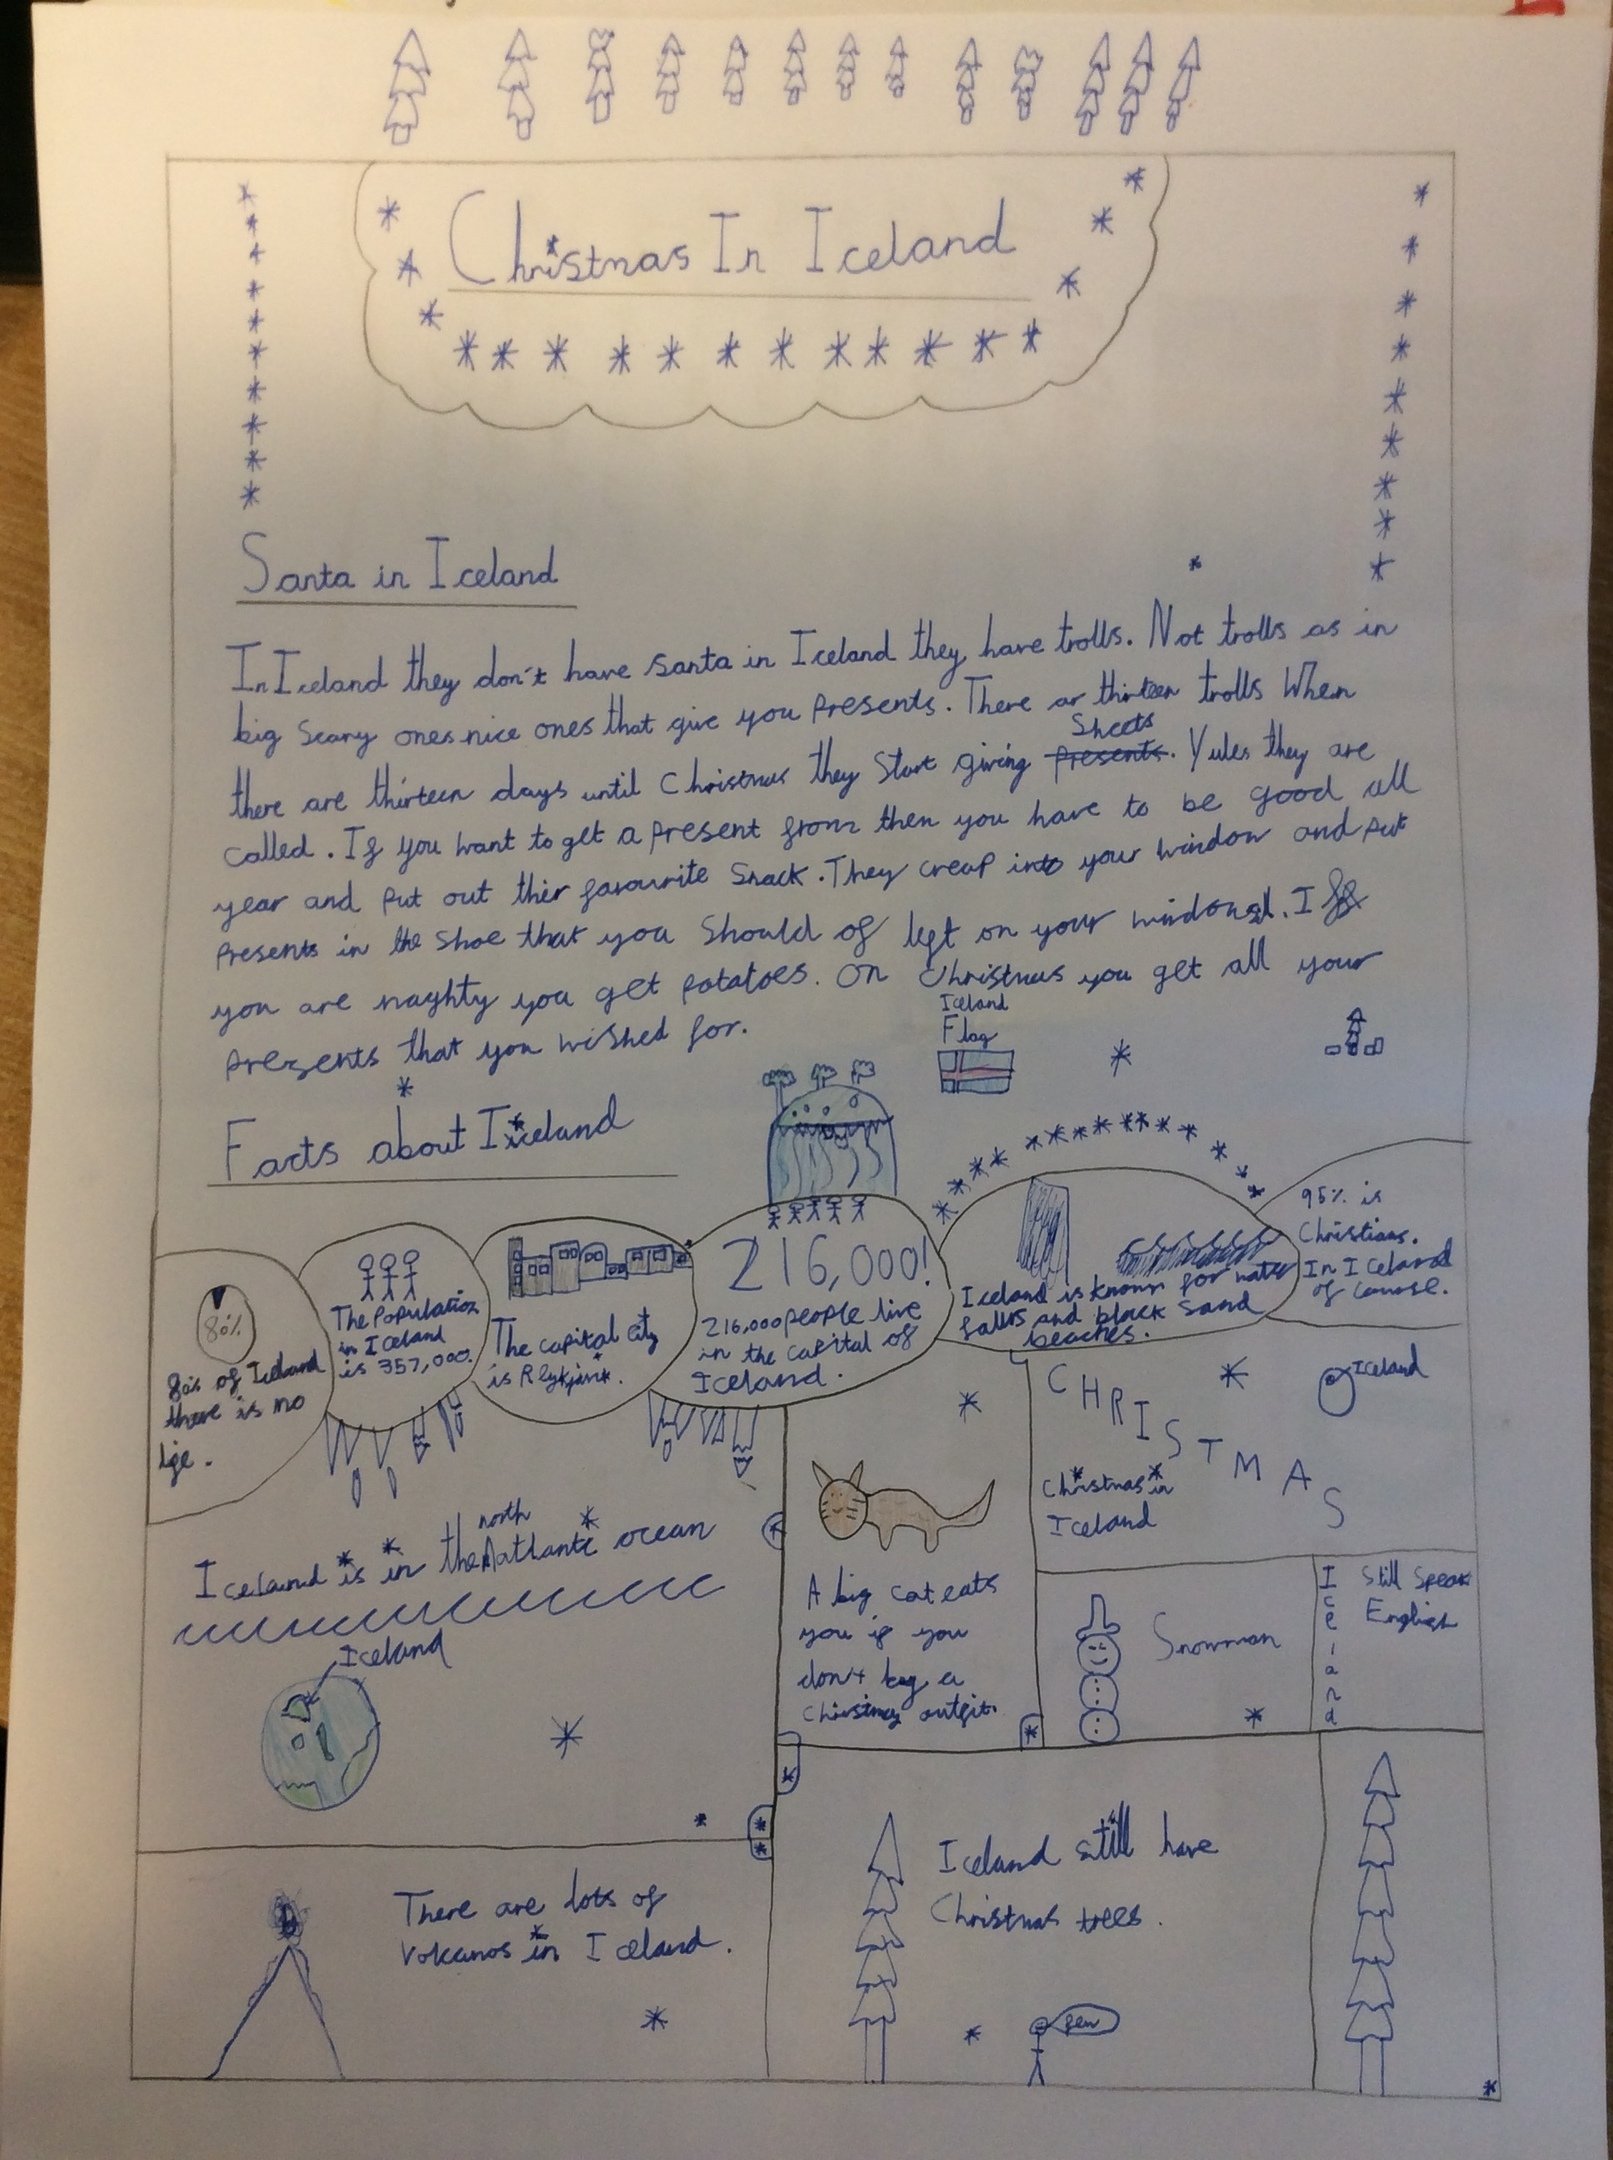 Christmas In Iceland
Santa in Iceland
In Iceland they don't have santa in Iceland they have trolls. Not trolls as in
big scary ones nice ones that give you presents. There ar thirteen trolls When
there are thirteen days until Christmas they start giving presents Sheets. Yules they are
called. If you want to get a present from then you have to be good all
year and put out thier favourite snack. They creap into your window and put
presents in the shoe that you should of left on your windowsil. If
you are naghty you get potatoes. On Christmas you get all your
presents that you wished for.
Iceland
Flag
Facts about Iceland
80%
80% of Iceland
there is no
life.
The Population
in Iceland
is 357,000.
The capital city
is Rlykjavik.
216,000!
216,000 people live
in the capital of
Iceland.
Iceland is known for water
falls and black sand
beaches.
95% is
Christians.
In Iceland
of course.
Iceland is in the north Atlantic ocean
Iceland
A big cat eats
you if you
don't buy a
Christmas outfit.
CHRISTMAS
Iceland
Christmas in
Iceland
Snowman
Iceland
Still speak
English
There are lots of
volcanos in Iceland.
Iceland still have
Christmas trees.